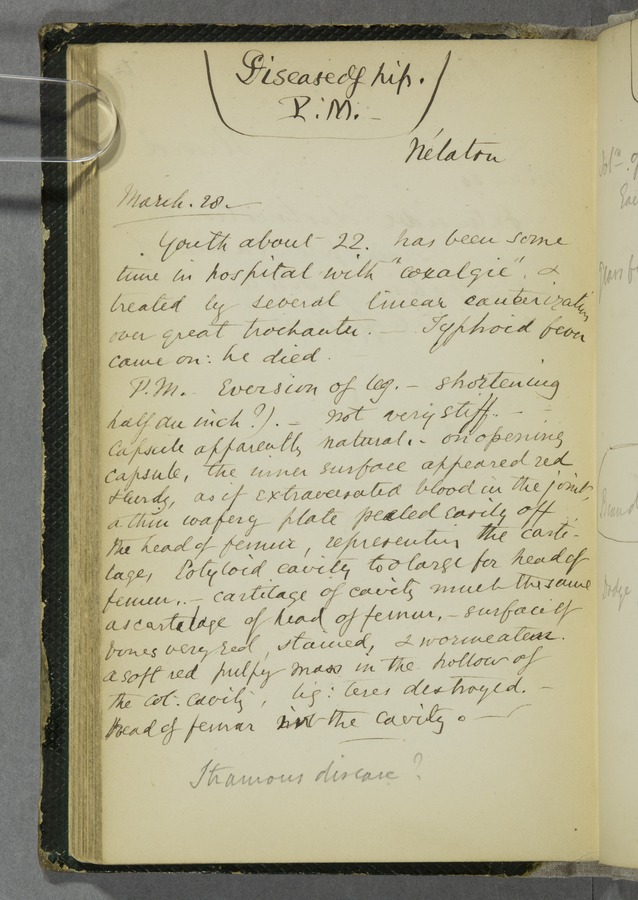 Disease of hip.
P.M. -
Nélaton
March. 28. -
Youth about 22. has been some
time in hospital with "coxalgie". &
treated by several linear cauterization
over great trochanter. - Typhoid fever
came on: he died.
P.M. - Eversion of leg. - shortening
half an inch?). - not very stiff. -
Capsule apparently natural. - on opening
capsule, the inner surface appeared red
as if extravasated blood in the joint,
a thin wafery plate peeled easily off
the head of femur, representing the carti-
lage, Cotyloid cavity too large for head of
femur. - cartilage of cavity much the same
as cartelage of head of femur, - surface of
bones very red, stained, & wormeaten.
a soft red pulpy mass in the hollow of
the cot. cavity, lig: teres destroyed. -
Head of femur in the cavity. -
Strumous disease?